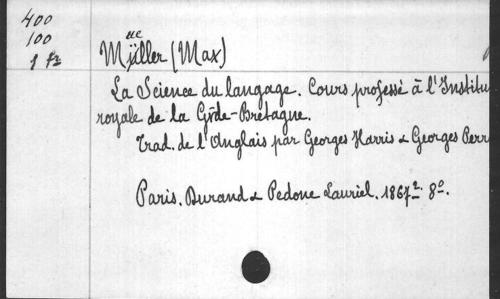 400
100
1 fz
Müller (Max)
La Science du langage. Cours professé à l'Institu
royale de la Gde-Bretagne.
Trad. de l'Anglais par Georges Harris & Georges Perr
Paris. Durand & Pedone Lauriel. 1867. 8º.